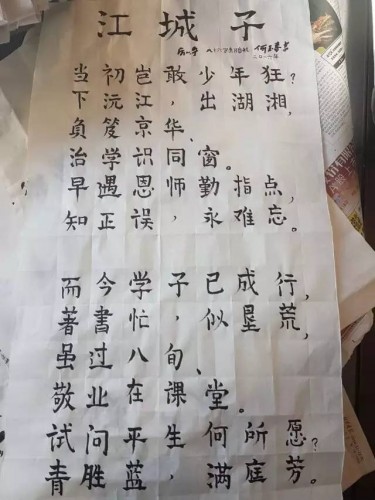 江城子
当初岂敢少年狂?
下沅江,出湖湘,
负笈京华、
治学识同窗。
早遇恩师勤指点,
知正误,永难忘。
而今学子已成行,
著書忙,似垦荒,
虽过八旬、
敬业在课堂。
试问平生何所愿?
青胜蓝,满庭芳。